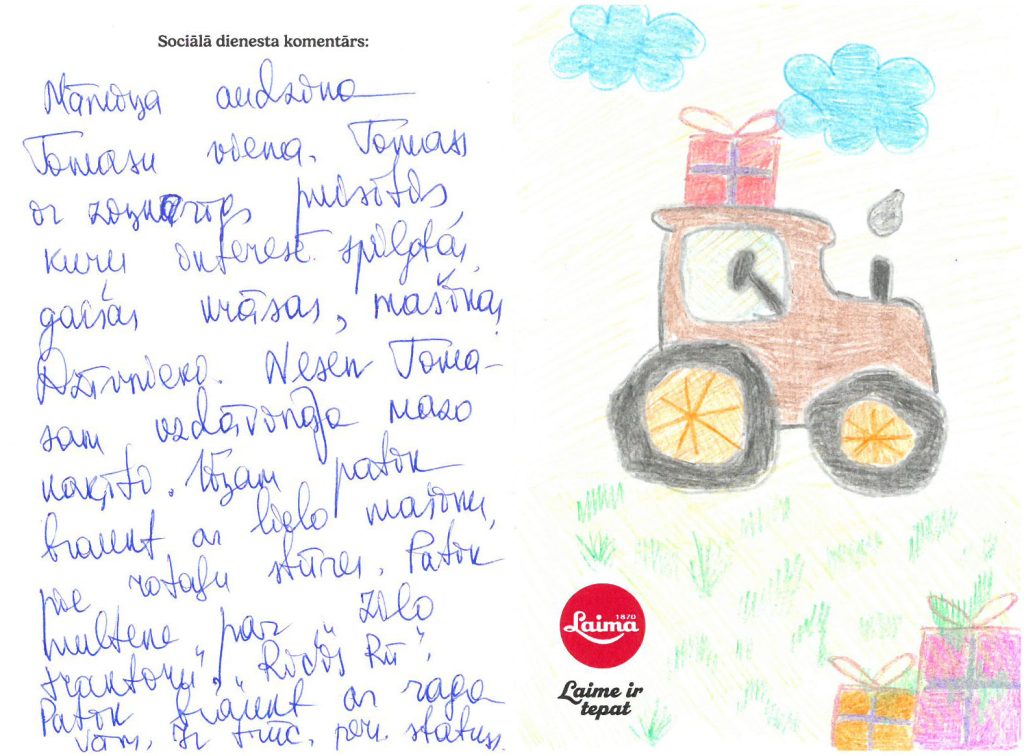 Sociālā dienesta komentārs:
Māmiņa audzina
Tomasu viena. Tomass
ir zinkārīgs puisītis,
kuru interesē spilgtās,
gaišās krāsas, mašīnas,
Dzīvnieki. Nesen Toma-
sam uzdāvināja mazo
kaķīti. Viņam patīk
braukt ar lielo mašīnu,
pie rotaļu stūres. Patīk
multene „par zilo
traktoru", "Ričijs Rū".
Patīk braukt ar raga
vām. Ir trūc. pers. statuss.
Laima
1870
Laime ir
tepat